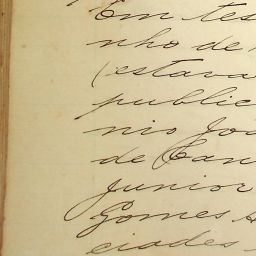 Em tes
nho de
(estava
public
nio Joa
de Can
Junior
Gomes
ciades